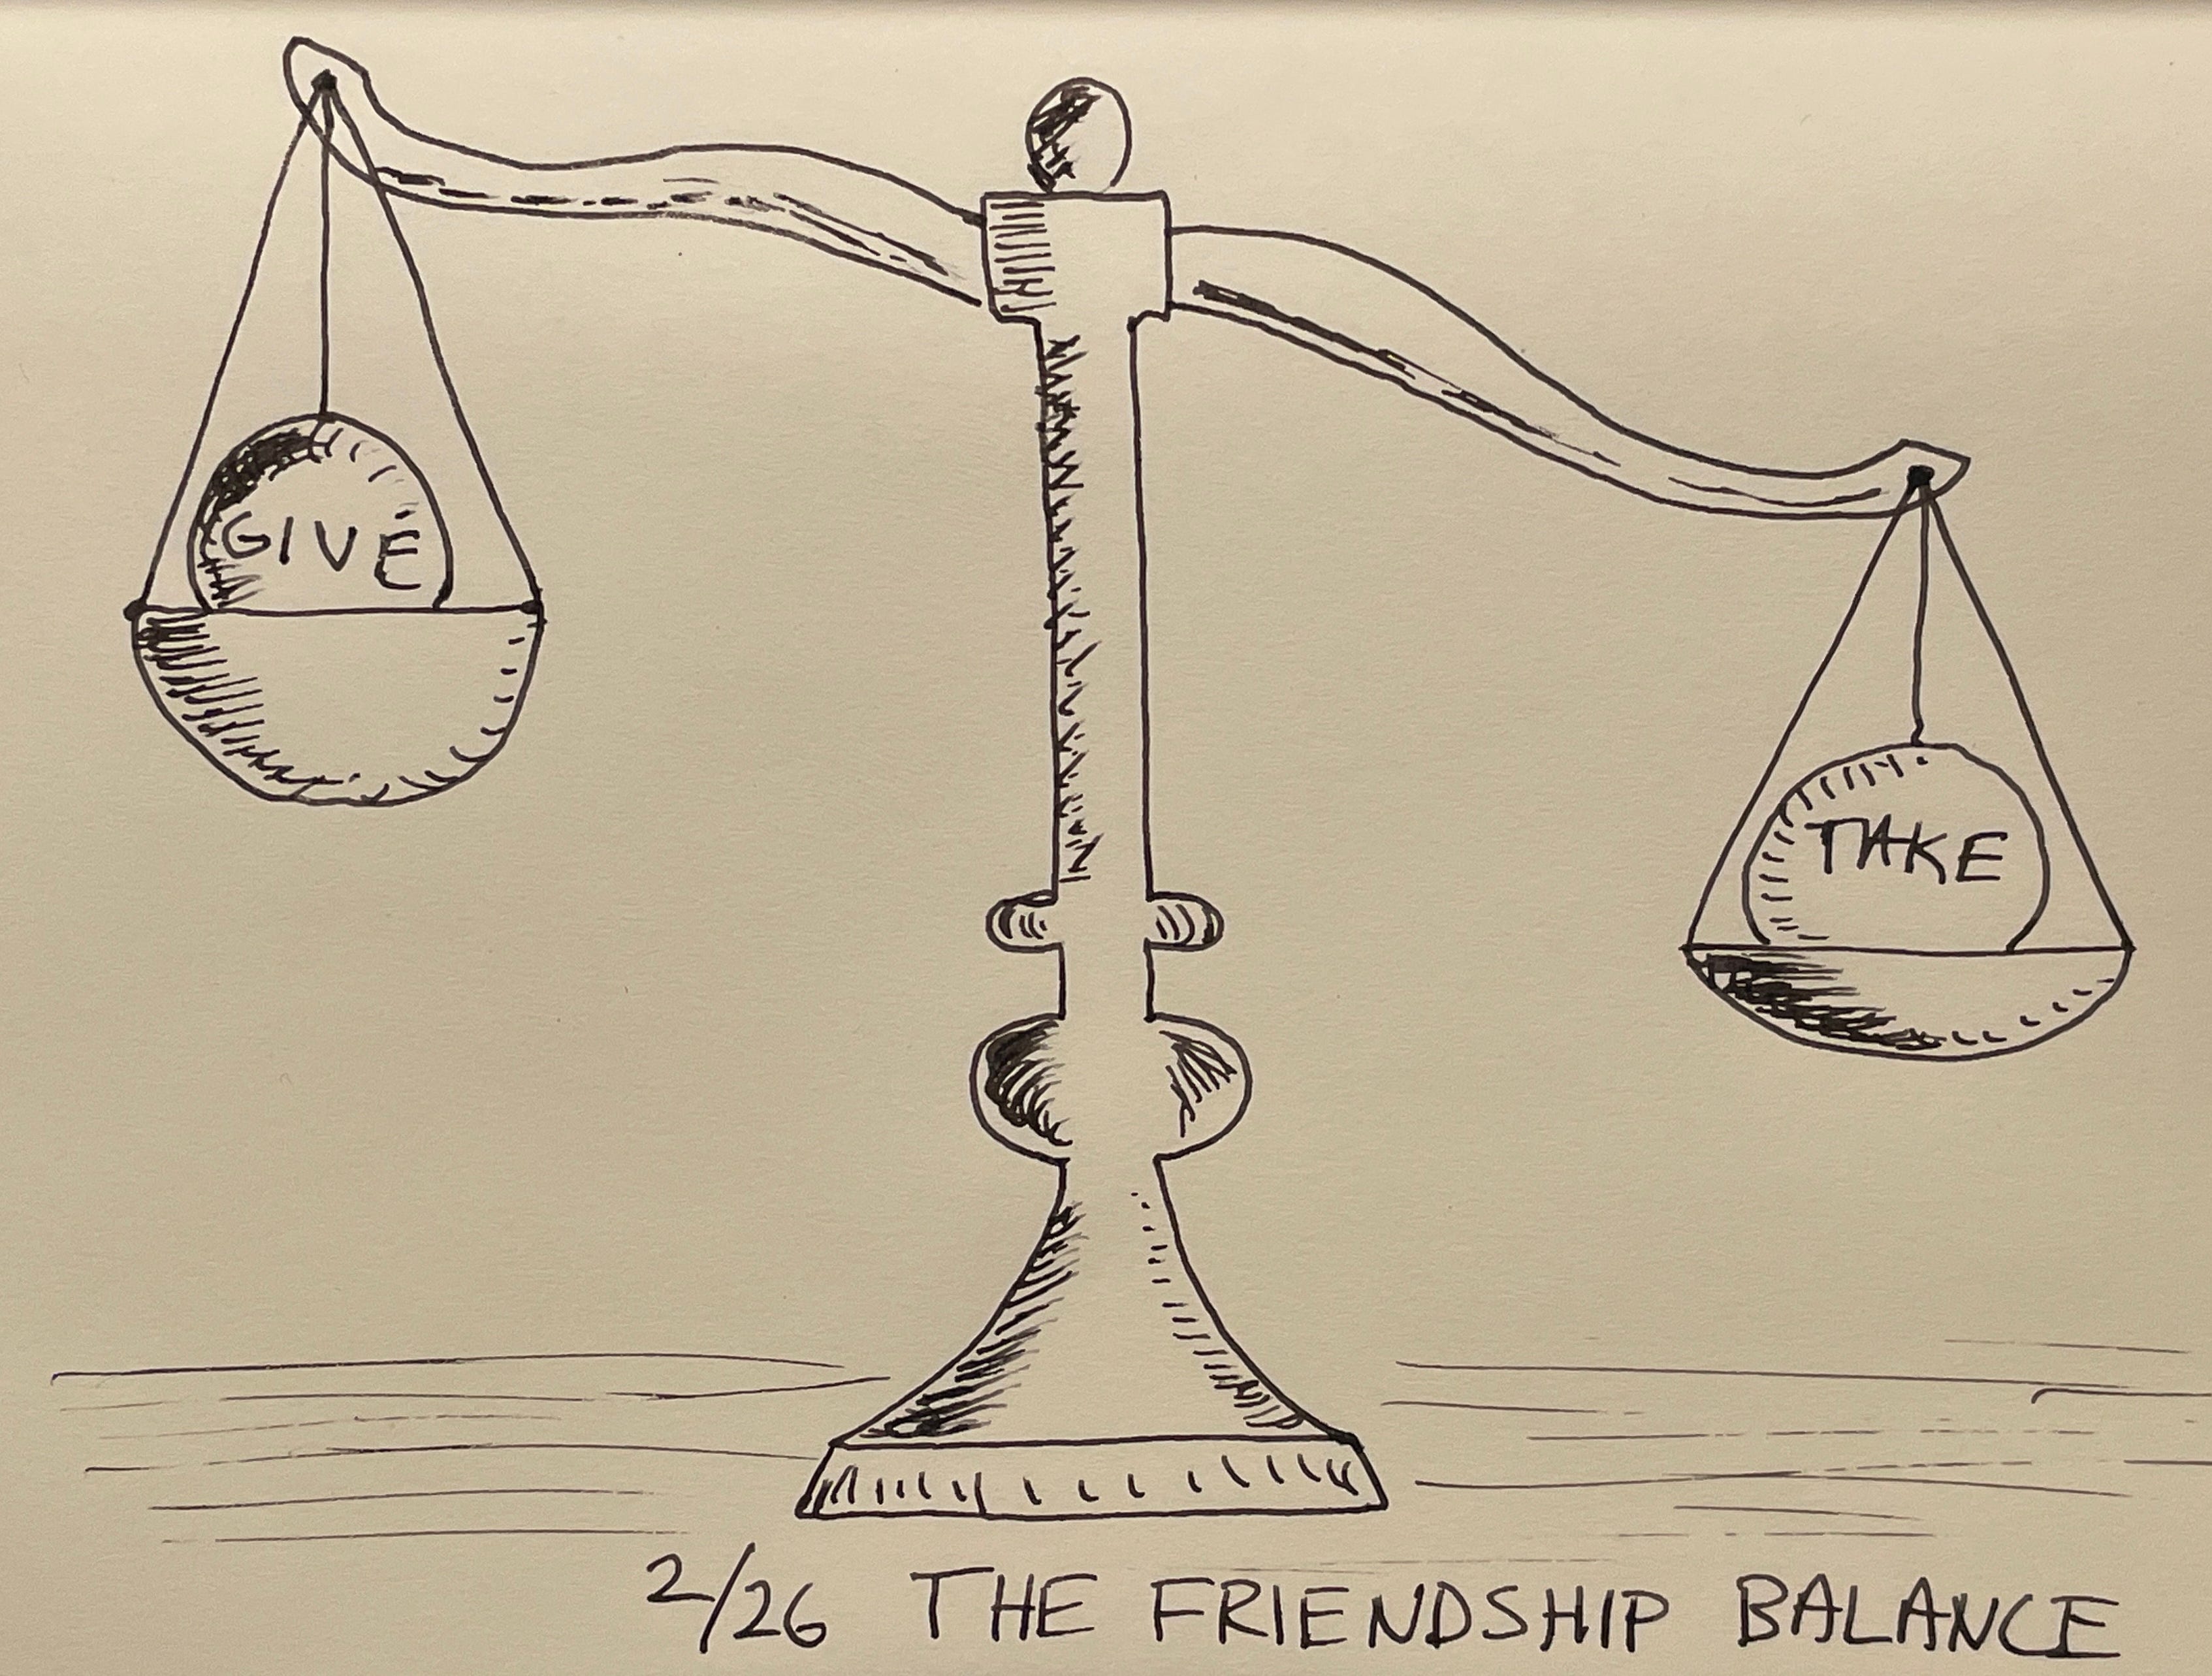 GIVE
TAKE
2/26 THE FRIENDSHIP BALANCE